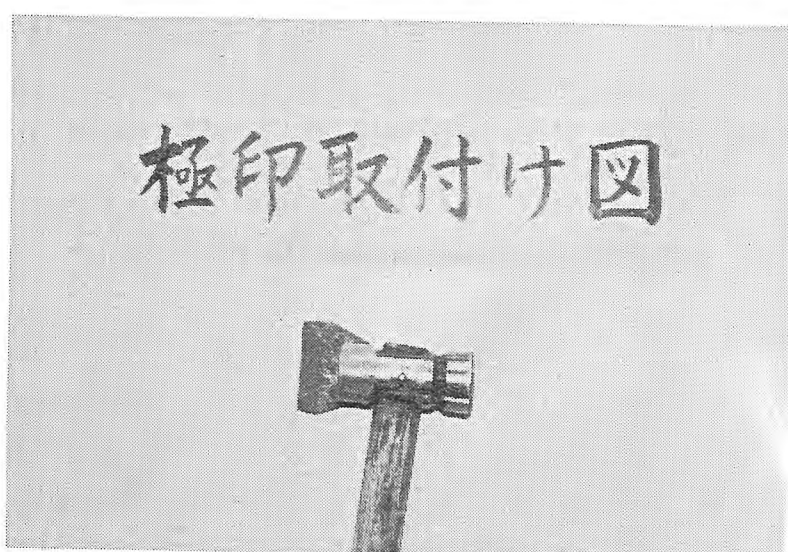 極印取付け図